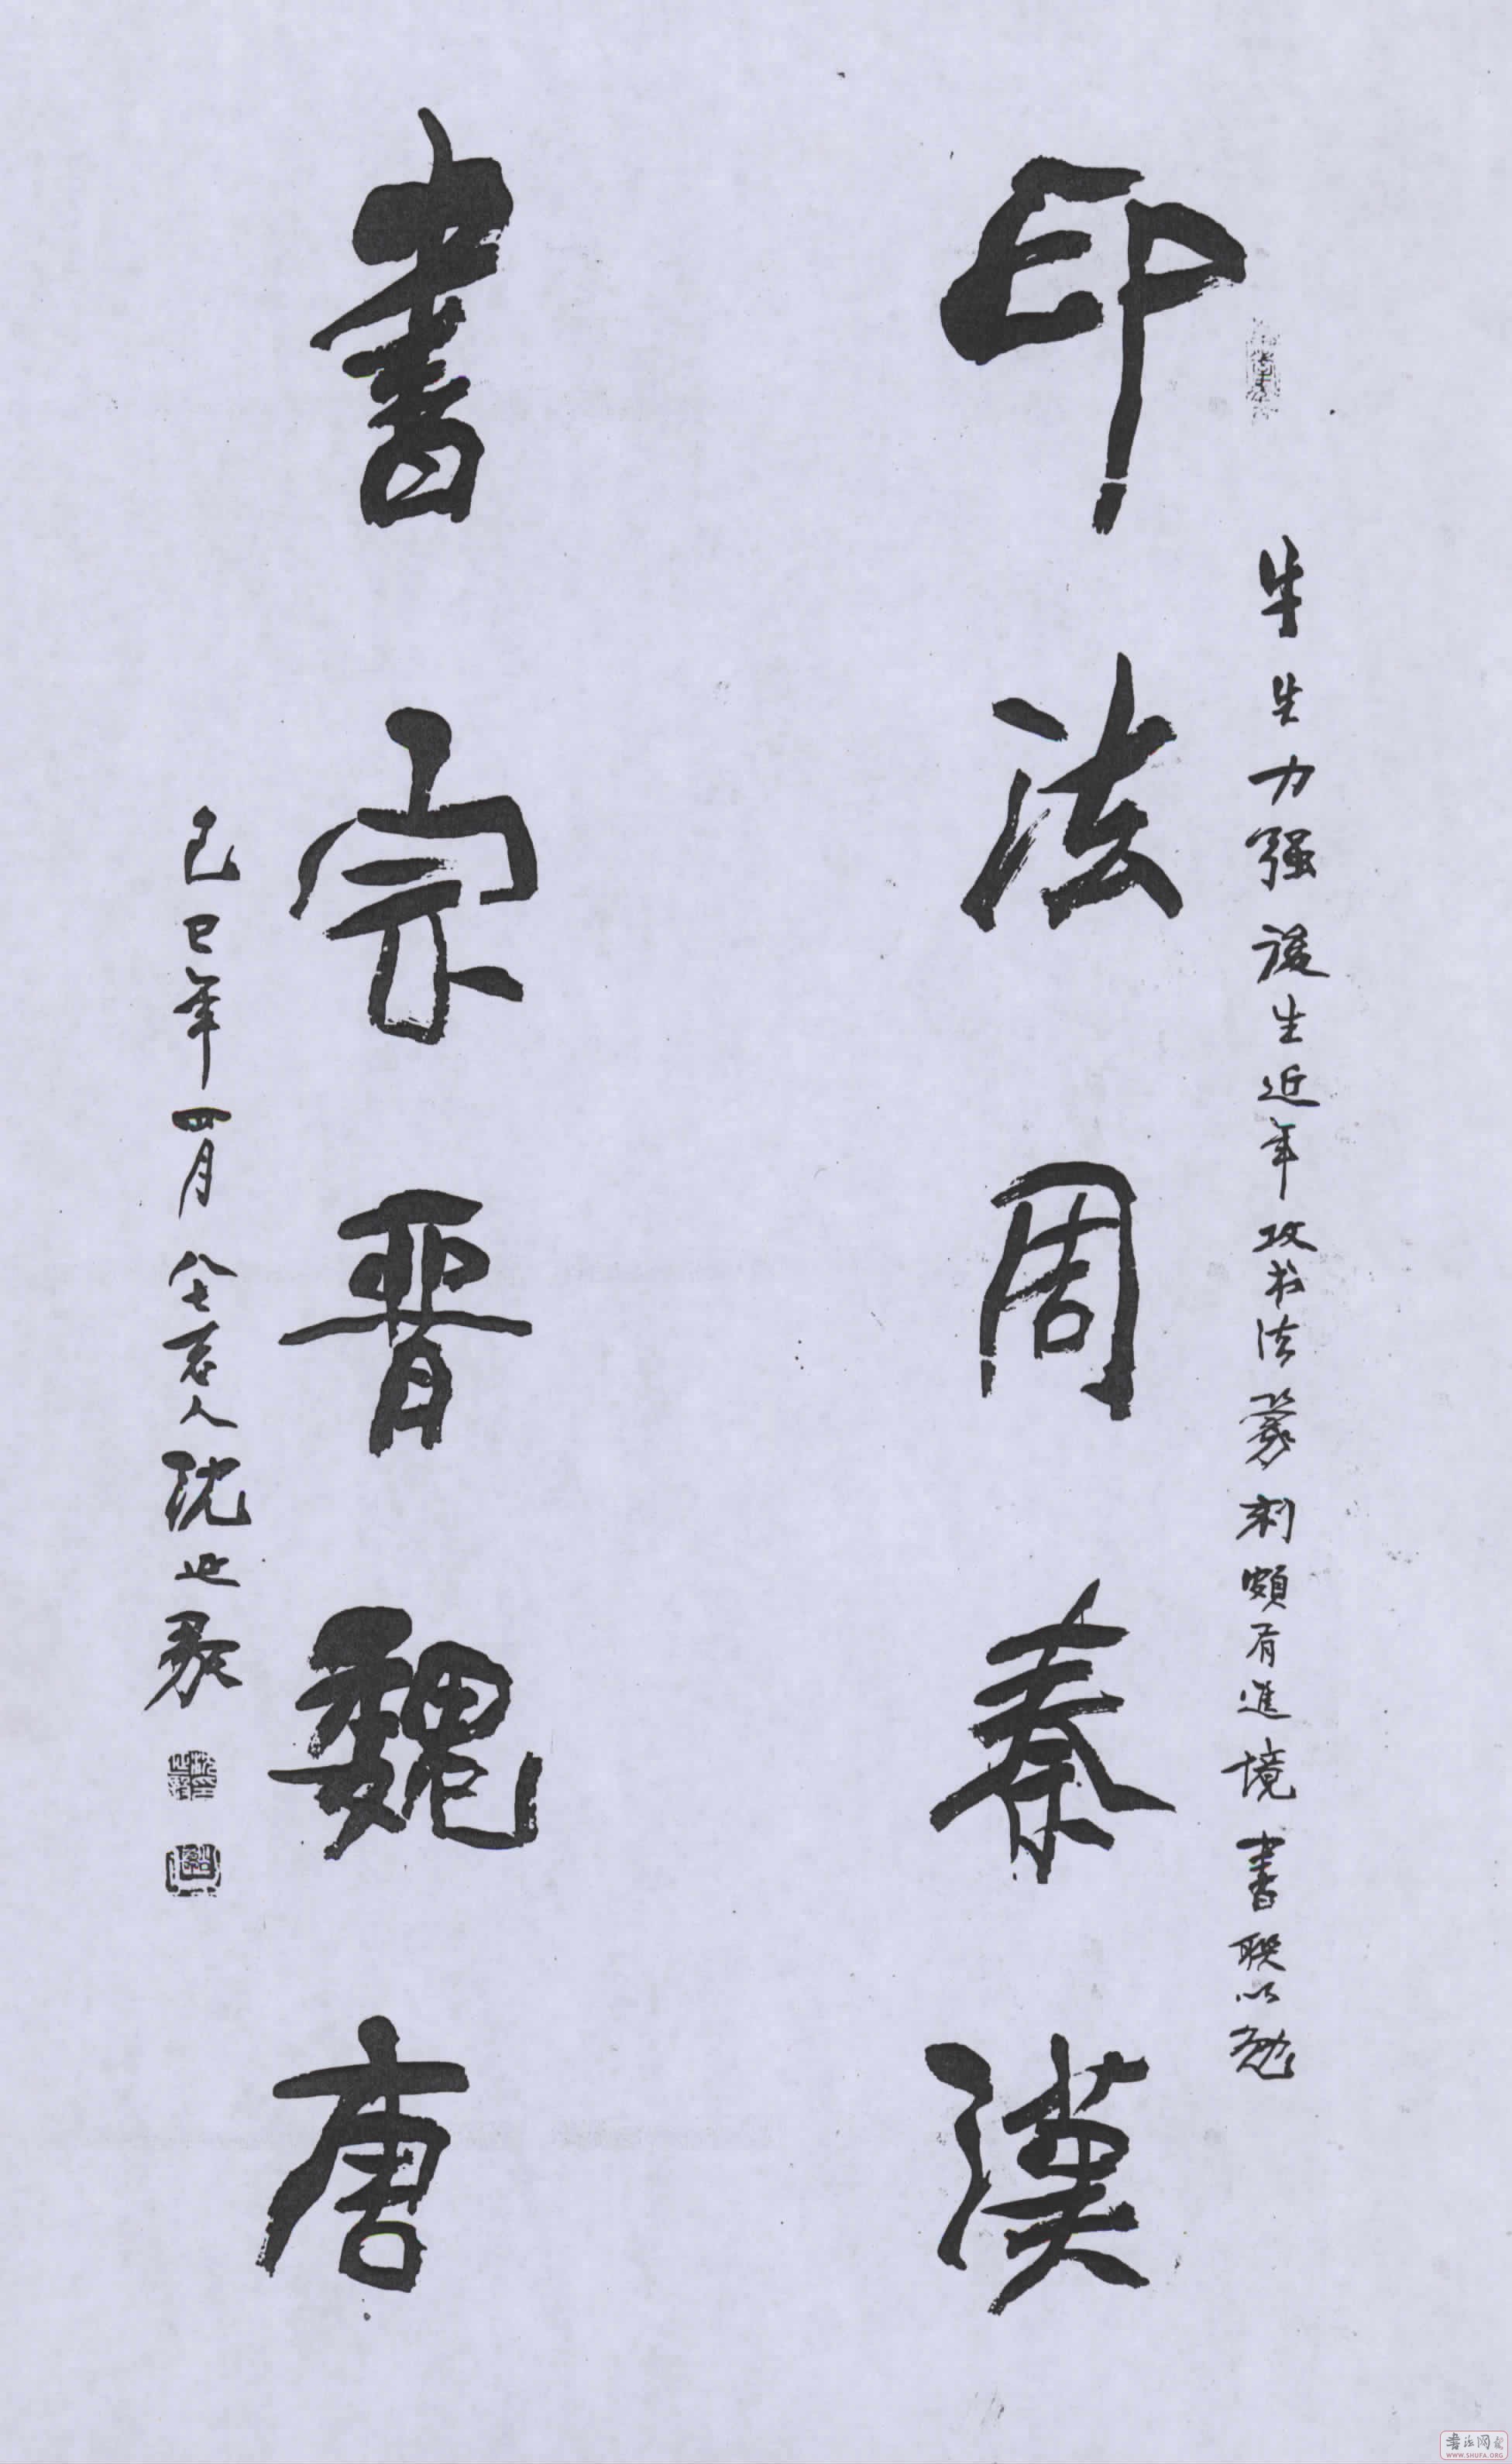 牛生力强後生近年攻书法篆刻頗有進境書聯以勉
印法周秦漢
書宗晋魏唐
己巳年四月 八七老人沈
书法网
WWW.SHUFA.ORG